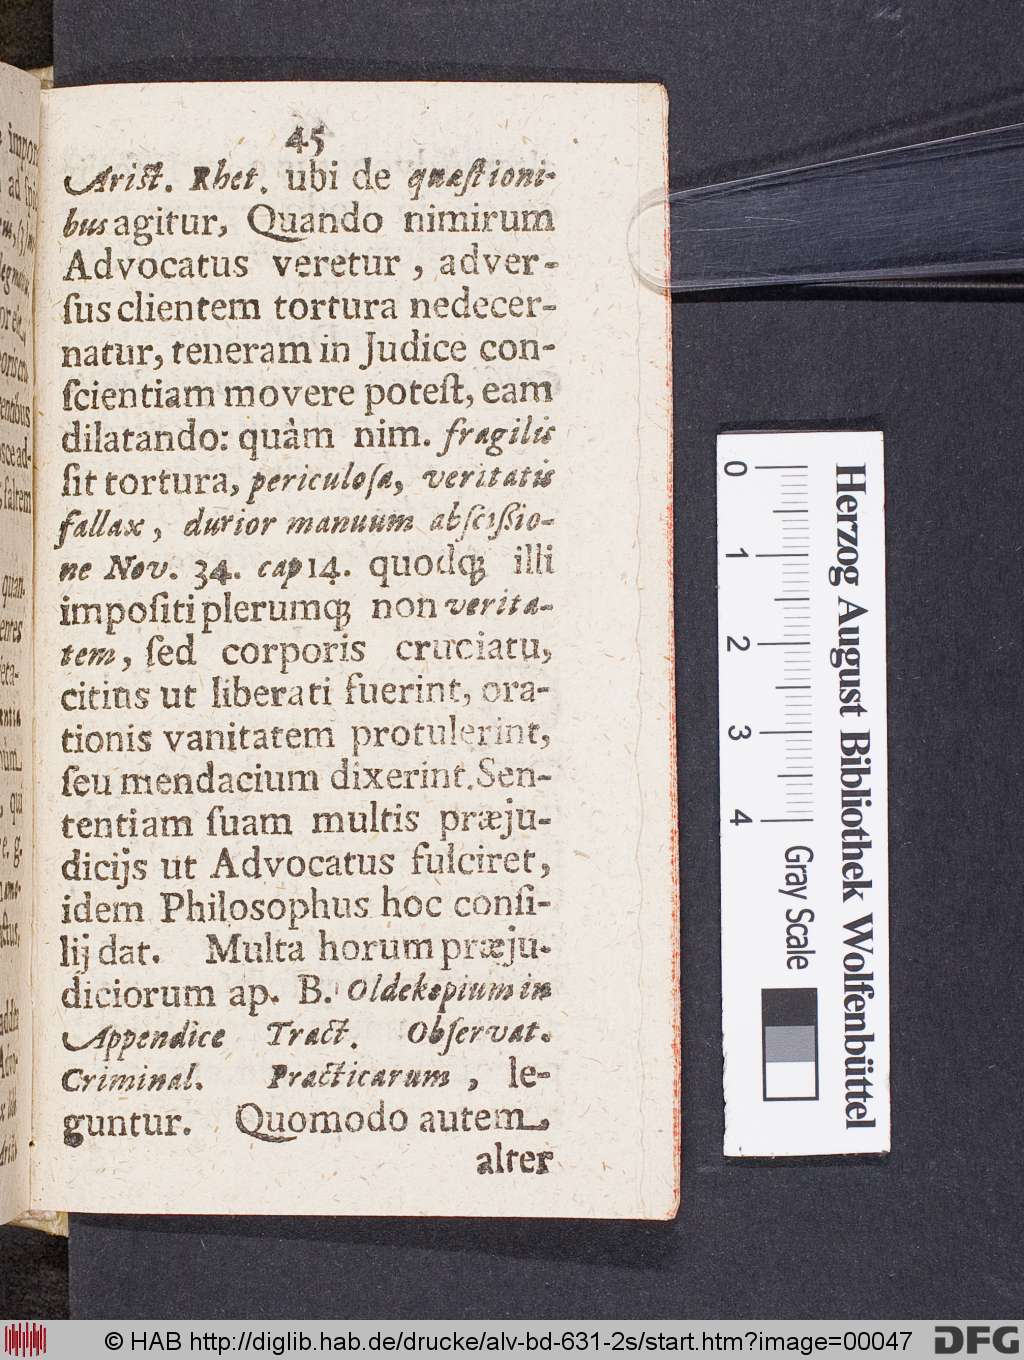 45
Arist. Rhet. ubi de quæſtioni-
bus agitur, Quando nimirum
Advocatus veretur, adver-
ſus clientem tortura nedecer-
natur, teneram in Judice con-
ſcientiam movere poteſt, eam
dilatando: quàm nim. fragilis
ſit tortura, periculoſa, veritatis
fallax, durior manuum abſcißio-
ne Nov. 34. cap 14. quodq; illi
impoſiti plerumq; non verita-
tem, ſed corporis cruciatu,
citius ut liberati fuerint, ora-
tionis vanitatem protulerint,
ſeu mendacium dixerint. Sen-
tentiam ſuam multis præju-
dicijs ut Advocatus fulciret,
idem Philosophus hoc conſi-
lij dat. Multa horum præju-
diciorum ap. B. Oldekopium in
Appendice Tract. Obſervat.
Criminal. Practicarum, le-
guntur. Quomodo autem
alter
0 1 2 3 4
Gray Scale
Herzog August Bibliothek Wolfenbüttel
© HAB http://diglib.hab.de/drucke/alv-bd-631-2s/start.htm?image=00047
DFG